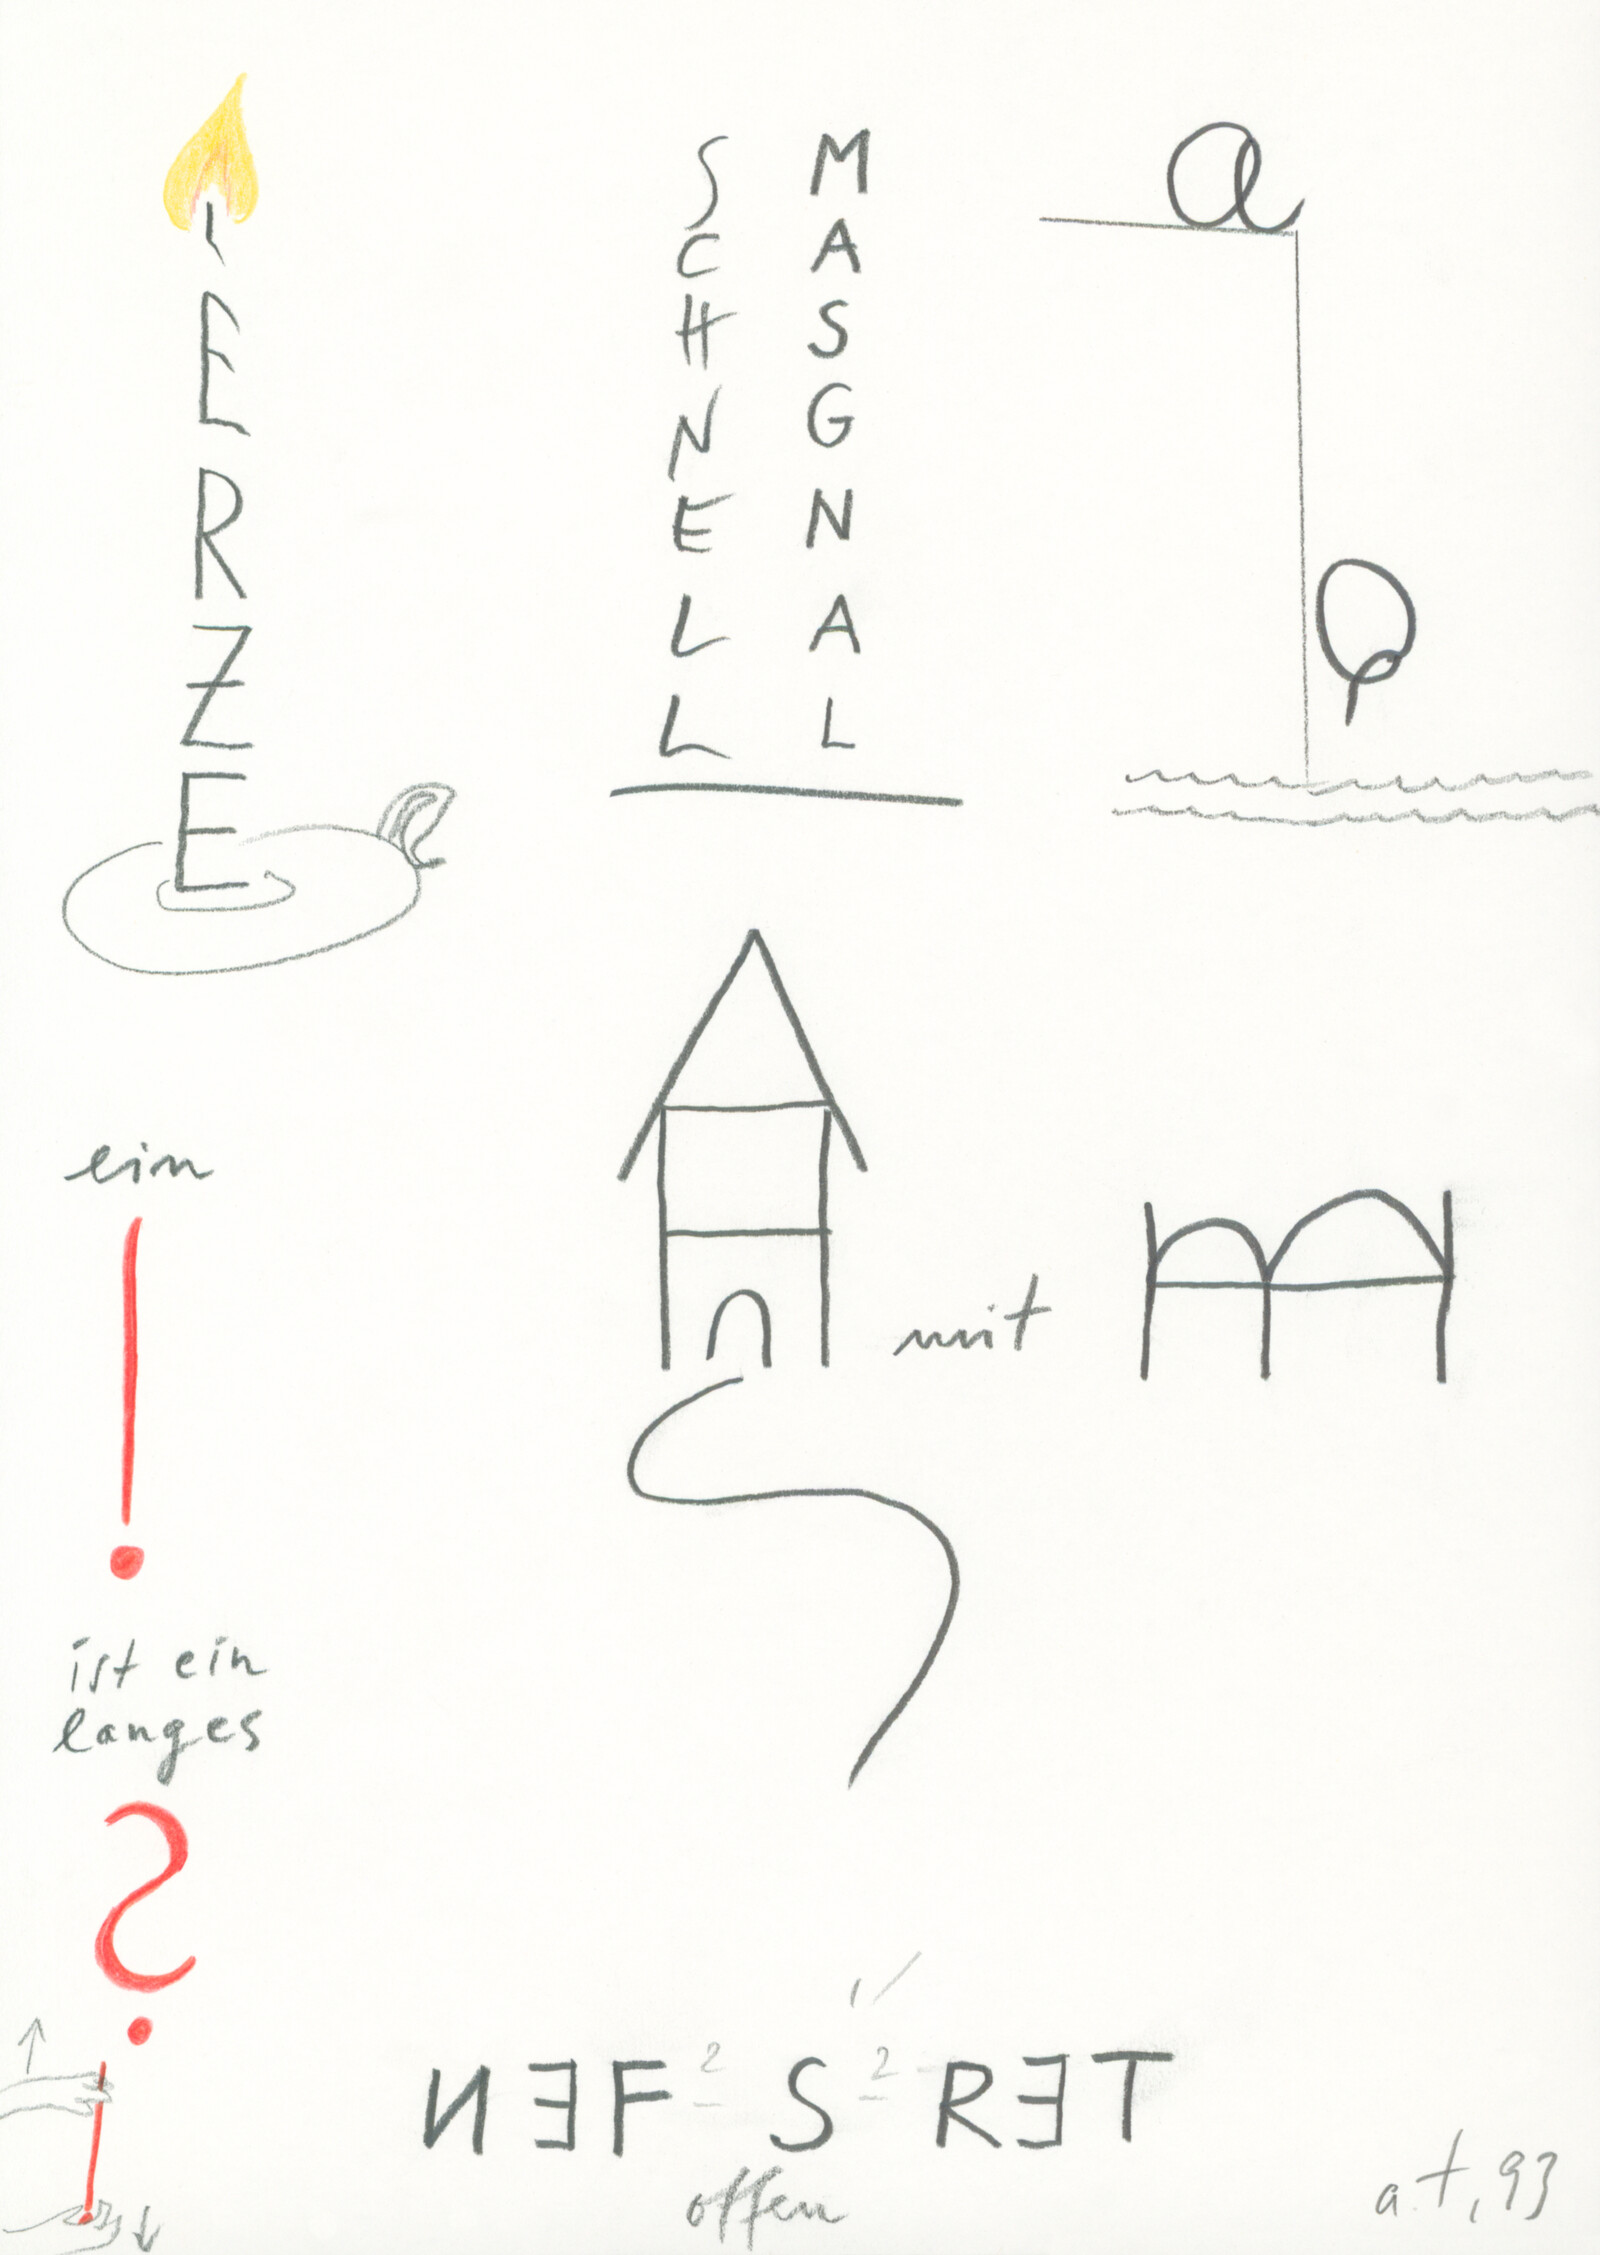 ERZE
SCHNELL
MASGNAL
a
a
ein
!
ist ein
langes
?
mit
ИƎF 2 S 2 RƎT
offen
a.t, 93